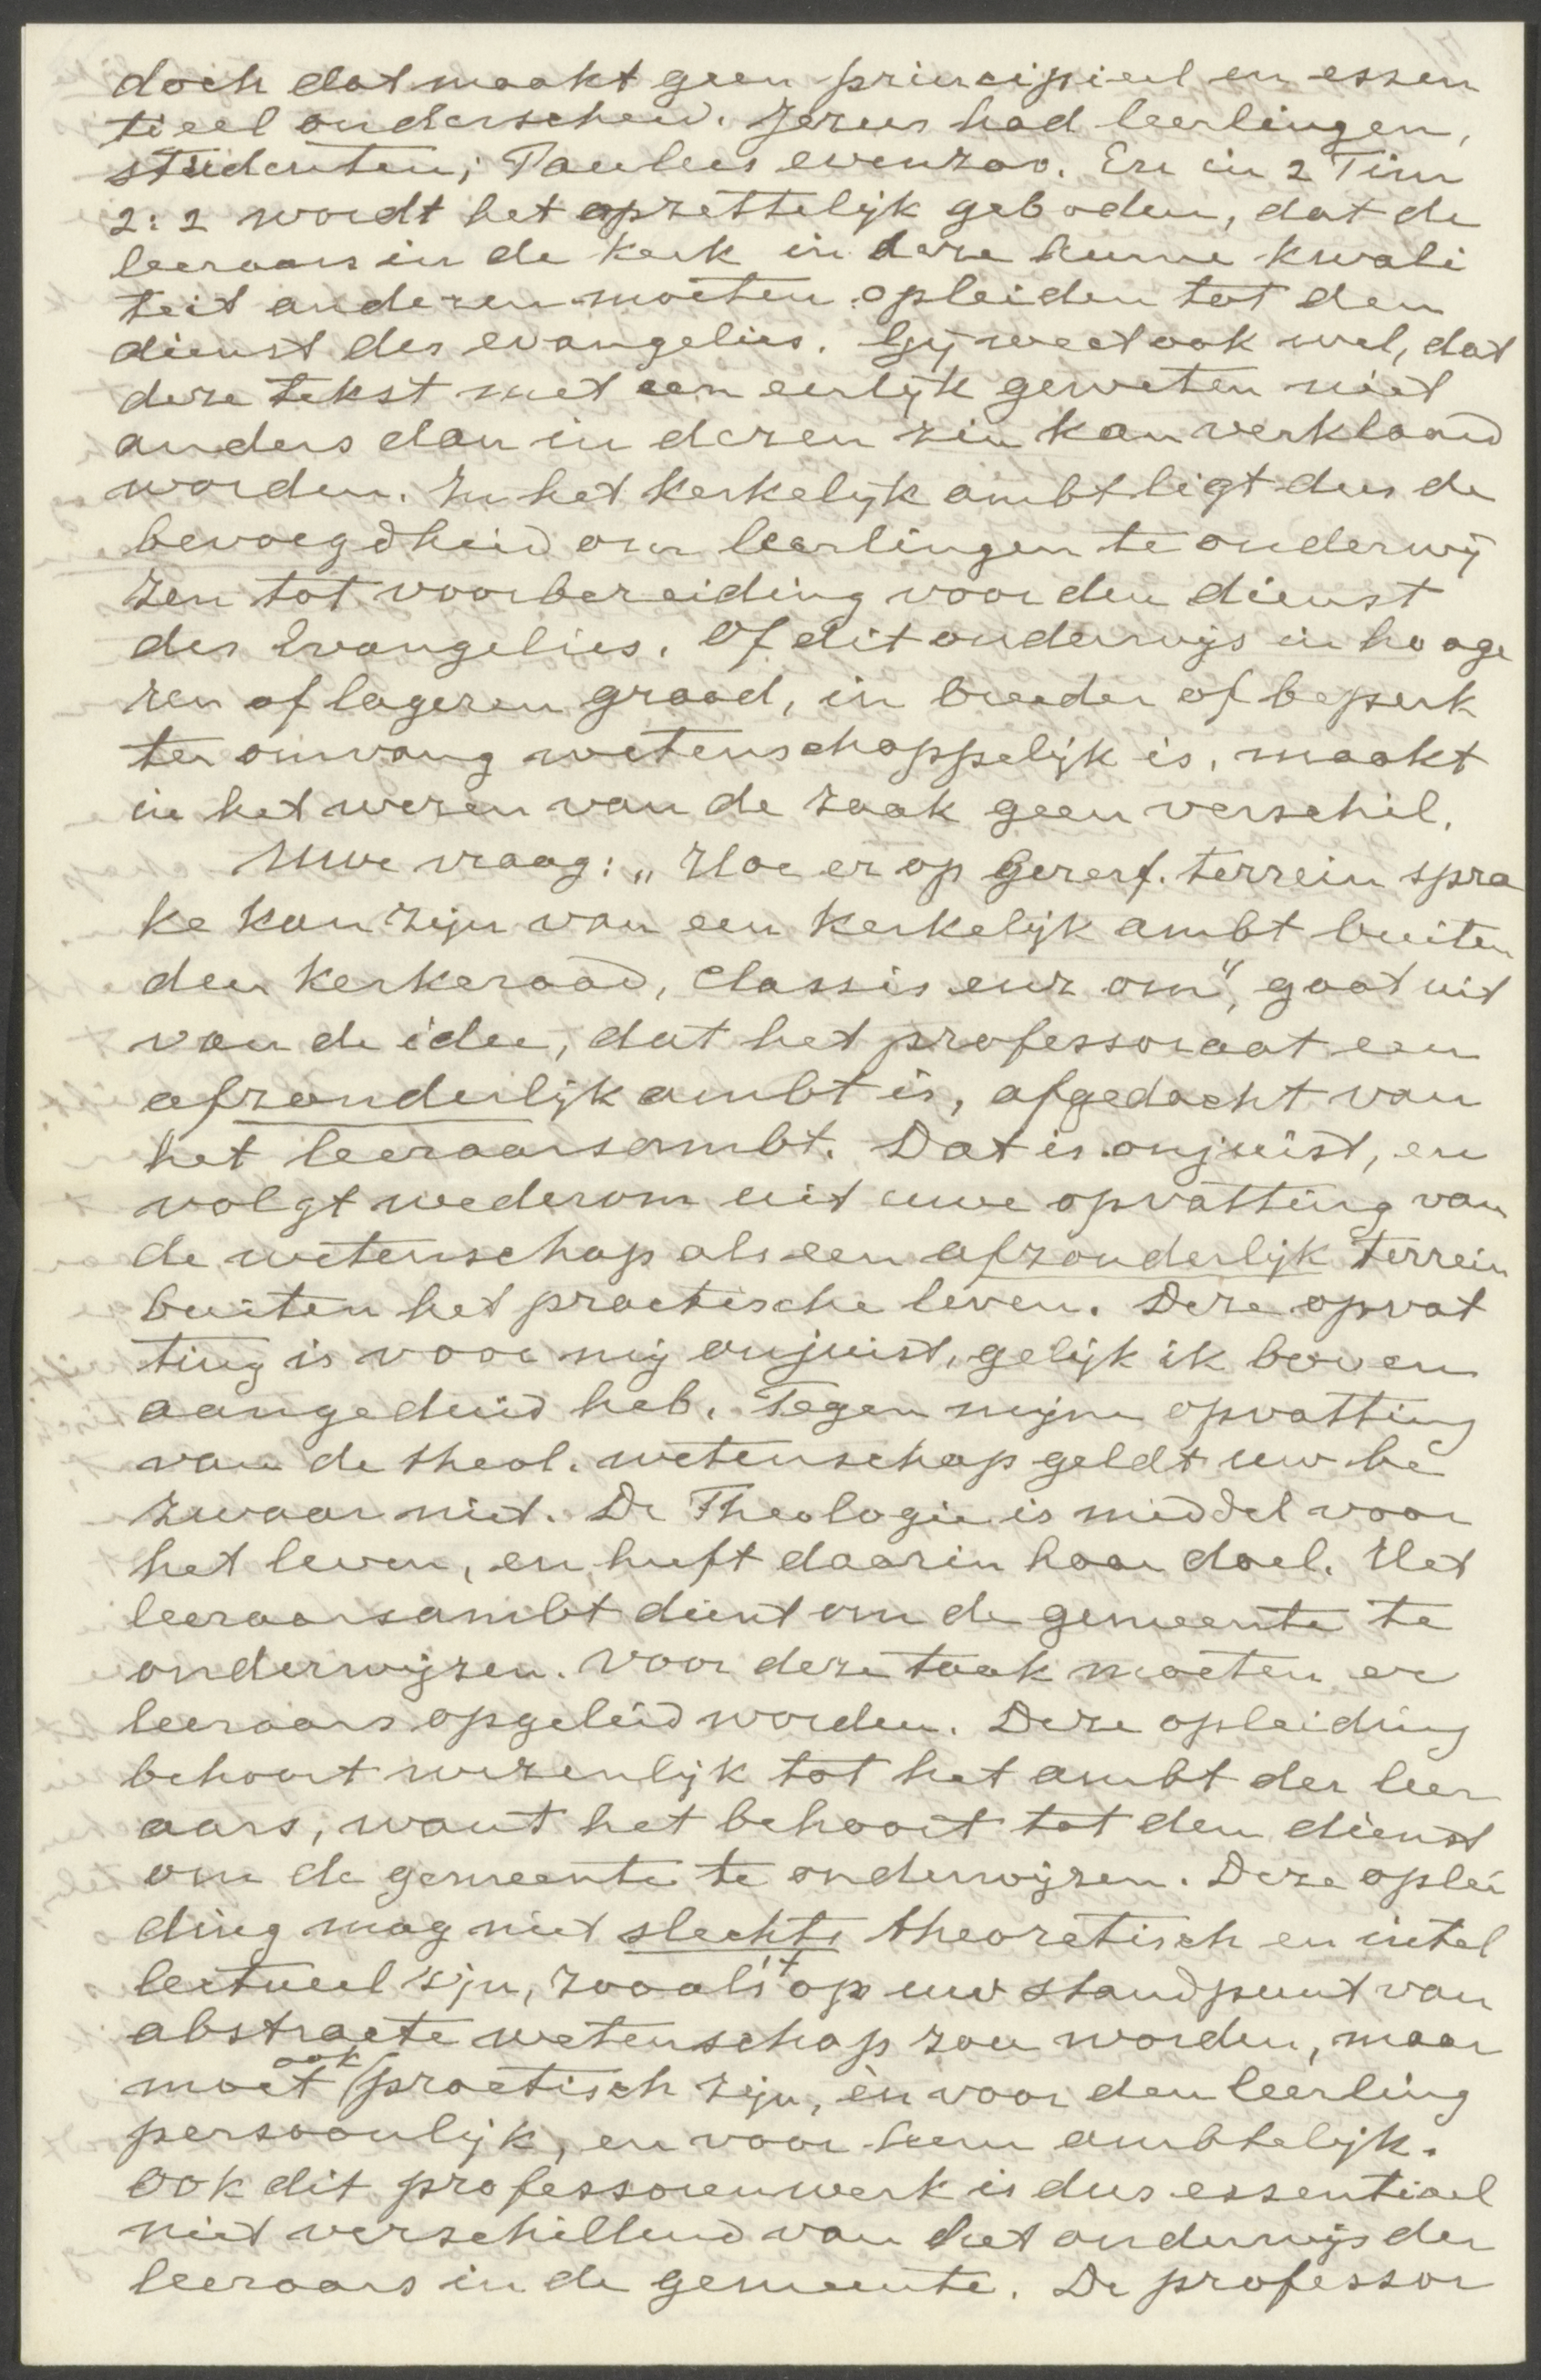 doch dat maakt geen principieel en essen
tieel onderscheid. Jezus had leerlingen,
studenten; Paulus evenzoo. En in 2 Tim
2:2 wordt het opzettelijk geboden, dat de
leeraars in de kerk in deze hunne kwali
teit anderen moeten opleiden tot den
dienst des evangelies. Gij weet ook wel, dat
deze tekst met een eerlijk geweten niet
anders dan in dezen zin kan verklaard
worden. In het kerkelijk ambt ligt dus de
bevoegdheid om leerlingen te onderwij
zen tot voorbereiding voor den dienst
des Evangelies. Of dit onderwijs in hooge
ren of lageren graad, in breeder of beperk
ter omvang wetenschappelijk is, maakt
in het wezen van de zaak geen verschil.
Uwe vraag: „Hoe er op Geref. terrein spra
ke kan zijn van een kerkelijk ambt buiten
den kerkeraad, classis enz om", gaat uit
van de idee, dat het professoraat een
afzonderlijk ambt is, afgedacht van
het leeraarsambt. Dat is onjuist, en
volgt wederom uit uwe opvatting van
de wetenschap als een afzonderlijk terrein
buiten het practische leven. Deze opvat
ting is voor mij onjuist, gelijk ik boven
aangeduid heb. Tegen mijne opvatting
van de theol. wetenschap geldt uw be
zwaar niet. De Theologie is middel voor
het leven, en heeft daarin haar doel. Het
leeraarsambt dient om de gemeente te
onderwijzen. Voor deze taak moeten er
leeraars opgeleid worden. Deze opleiding
behoort wezenlijk tot het ambt der leer
aars, want het behoort tot den dienst
om de gemeente te onderwijzen. Deze oplei
ding mag niet slechts theoretisch en intel
lectueel zijn, zooals 't op uw standpunt van
abstracte wetenschap zou worden, maar
moet ook practisch zijn, èn voor den leerling
persoonlijk, en voor hem ambtelijk.
Ook dit professorenwerk is dus essentieel
niet verschillend van het onderwijs der
leeraars in de gemeente. De professor